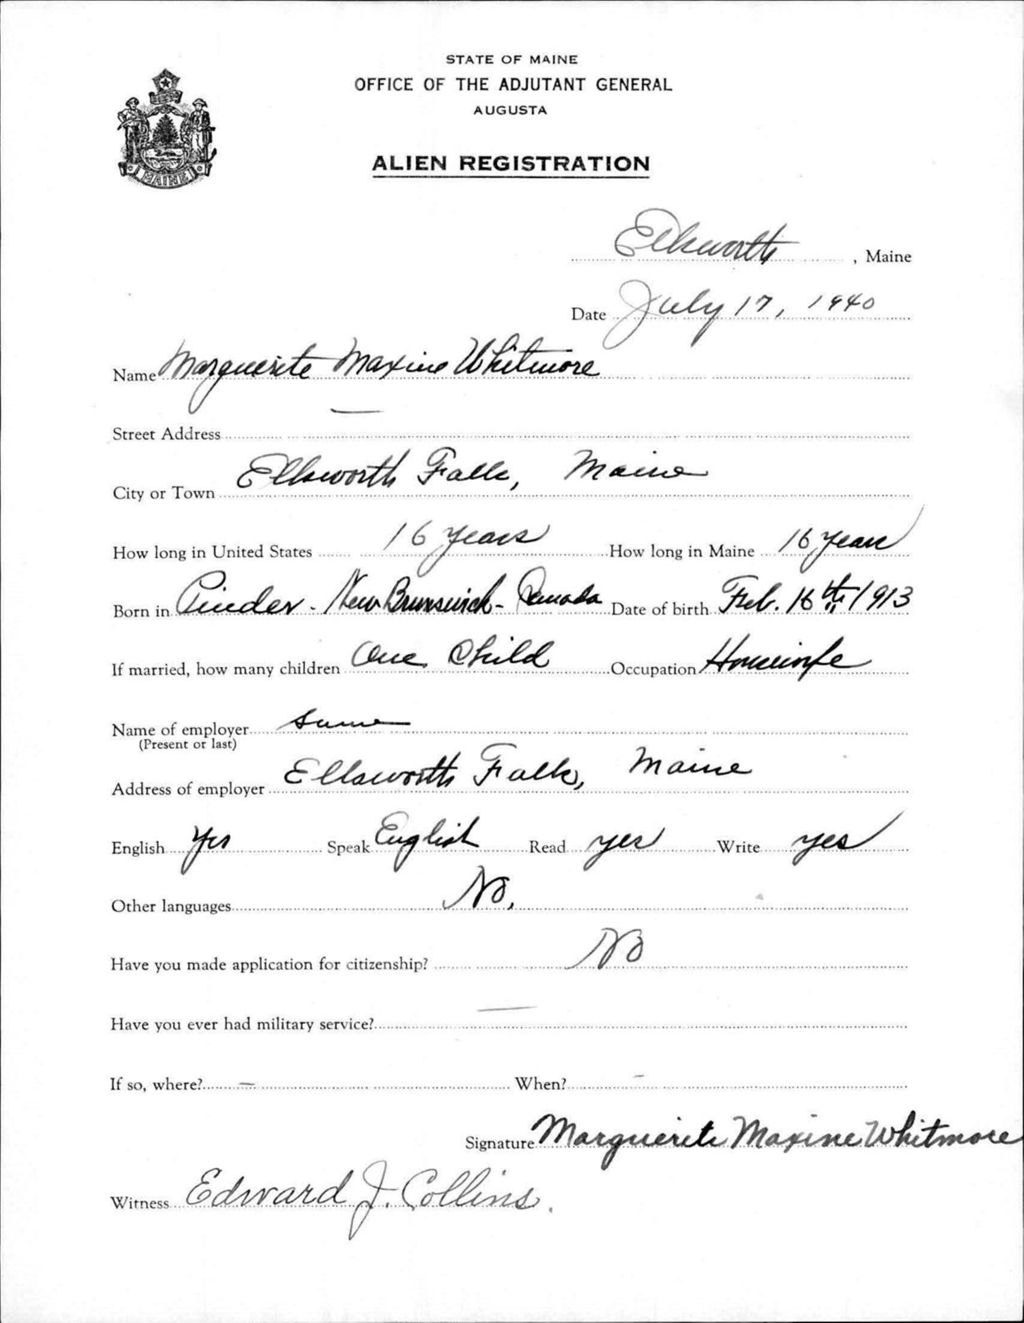 STATE OF MAINE
OFFICE OF THE ADJUTANT GENERAL
AUGUSTA
ALIEN REGISTRATION
MAINE
Ellsworth, Maine
Date July 17, 1940
Name Marguerite Maxine Whitmore
Street Address —
City or Town Ellsworth Falls, Maine
How long in United States 16 years How long in Maine 16 years
Born in Pinder - New Brunswick - Canada Date of birth Feb. 16th, 1913
If married, how many children One Child Occupation Housewife
Name of employer same
(Present or last)
Address of employer Ellsworth Falls, Maine
English Yes Speak English Read yes Write yes
Other languages No.
Have you made application for citizenship? No
Have you ever had military service? —
If so, where? — When? -
Signature Marguerite Maxine Whitmore
Witness Edward J. Collins.